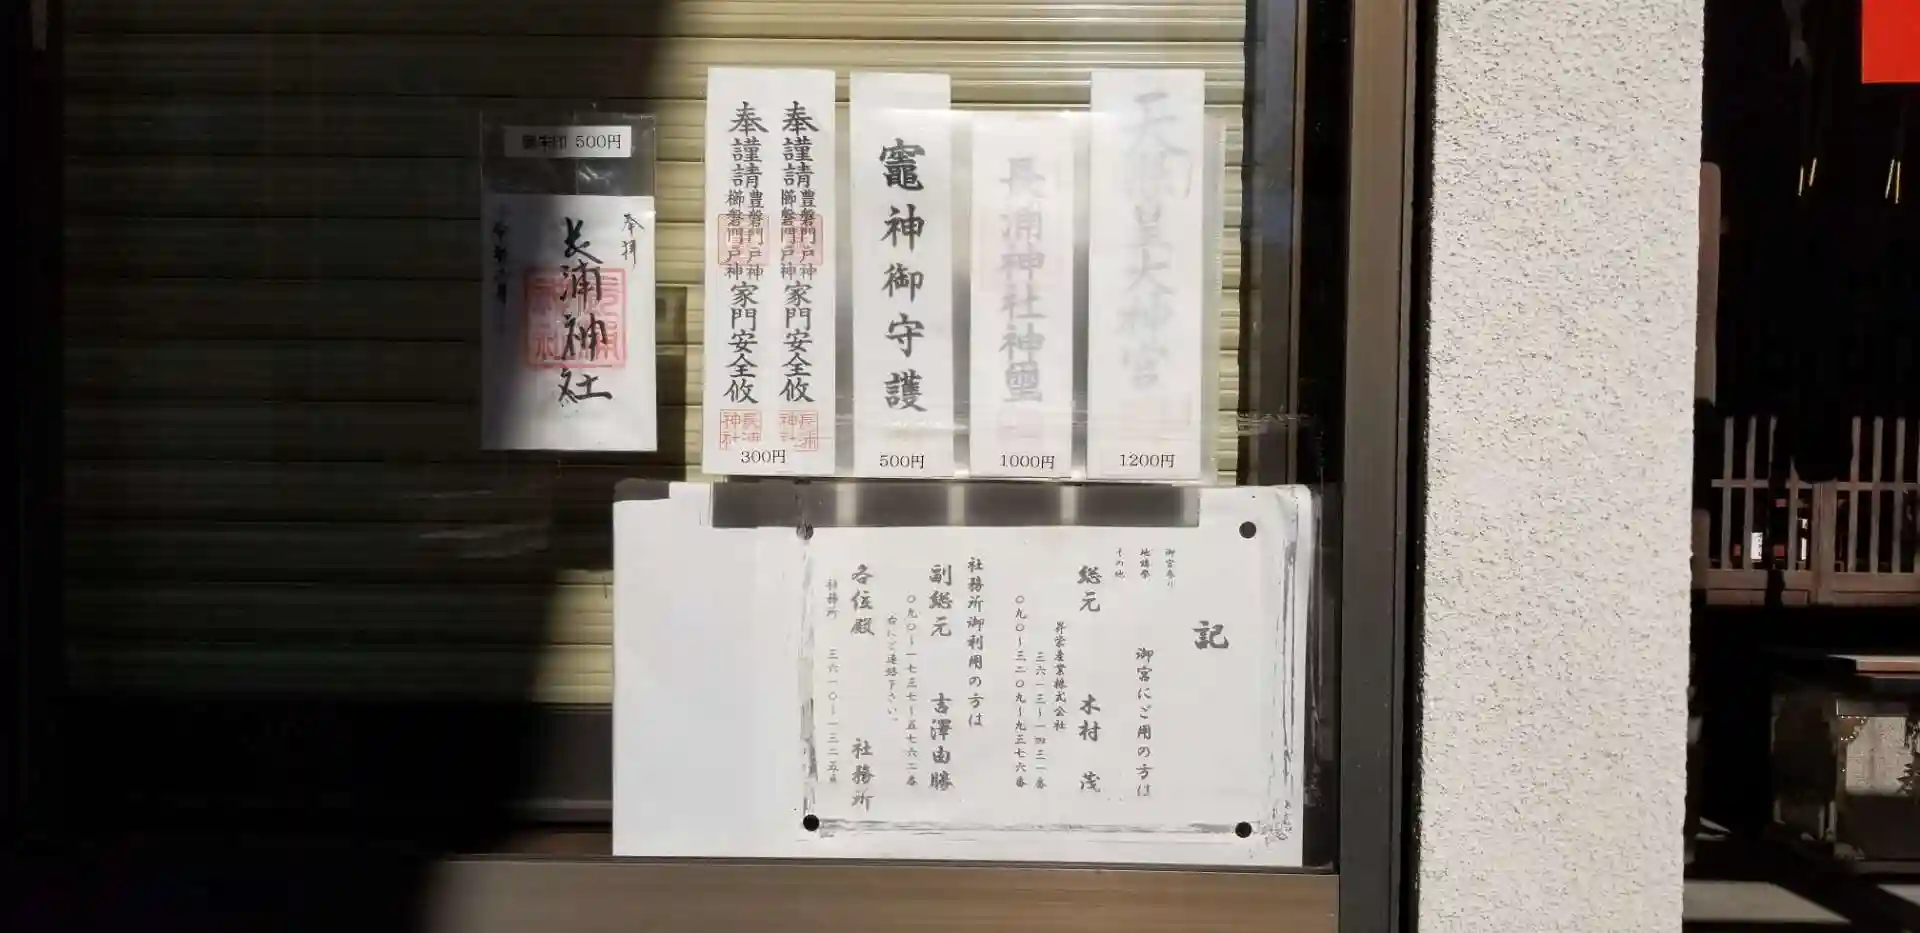 御朱印 500円
奉拝
長浦神社
奉謹請 豊磐門戸神 櫛磐門戸神 家門安全攸
長浦神社
奉謹請 豊磐門戸神 櫛磐門戸神 家門安全攸
長浦神社
300円
竈神御守護
500円
長浦神社神璽
1000円
天照皇大神宮
1200円
記
御宮参り
地鎮祭
その他
御宮にご用の方は
総元 木村 茂
昇栄産業株式会社
三六一三〜一四三一番
〇九〇〜三二〇九〜九三七六番
社務所御利用の方は
副総元 吉澤由勝
〇九〇〜一七三七〜五七六二番
右にご連絡下さい。
各位殿 社務所
社務所 三六一〇〜一三二五番